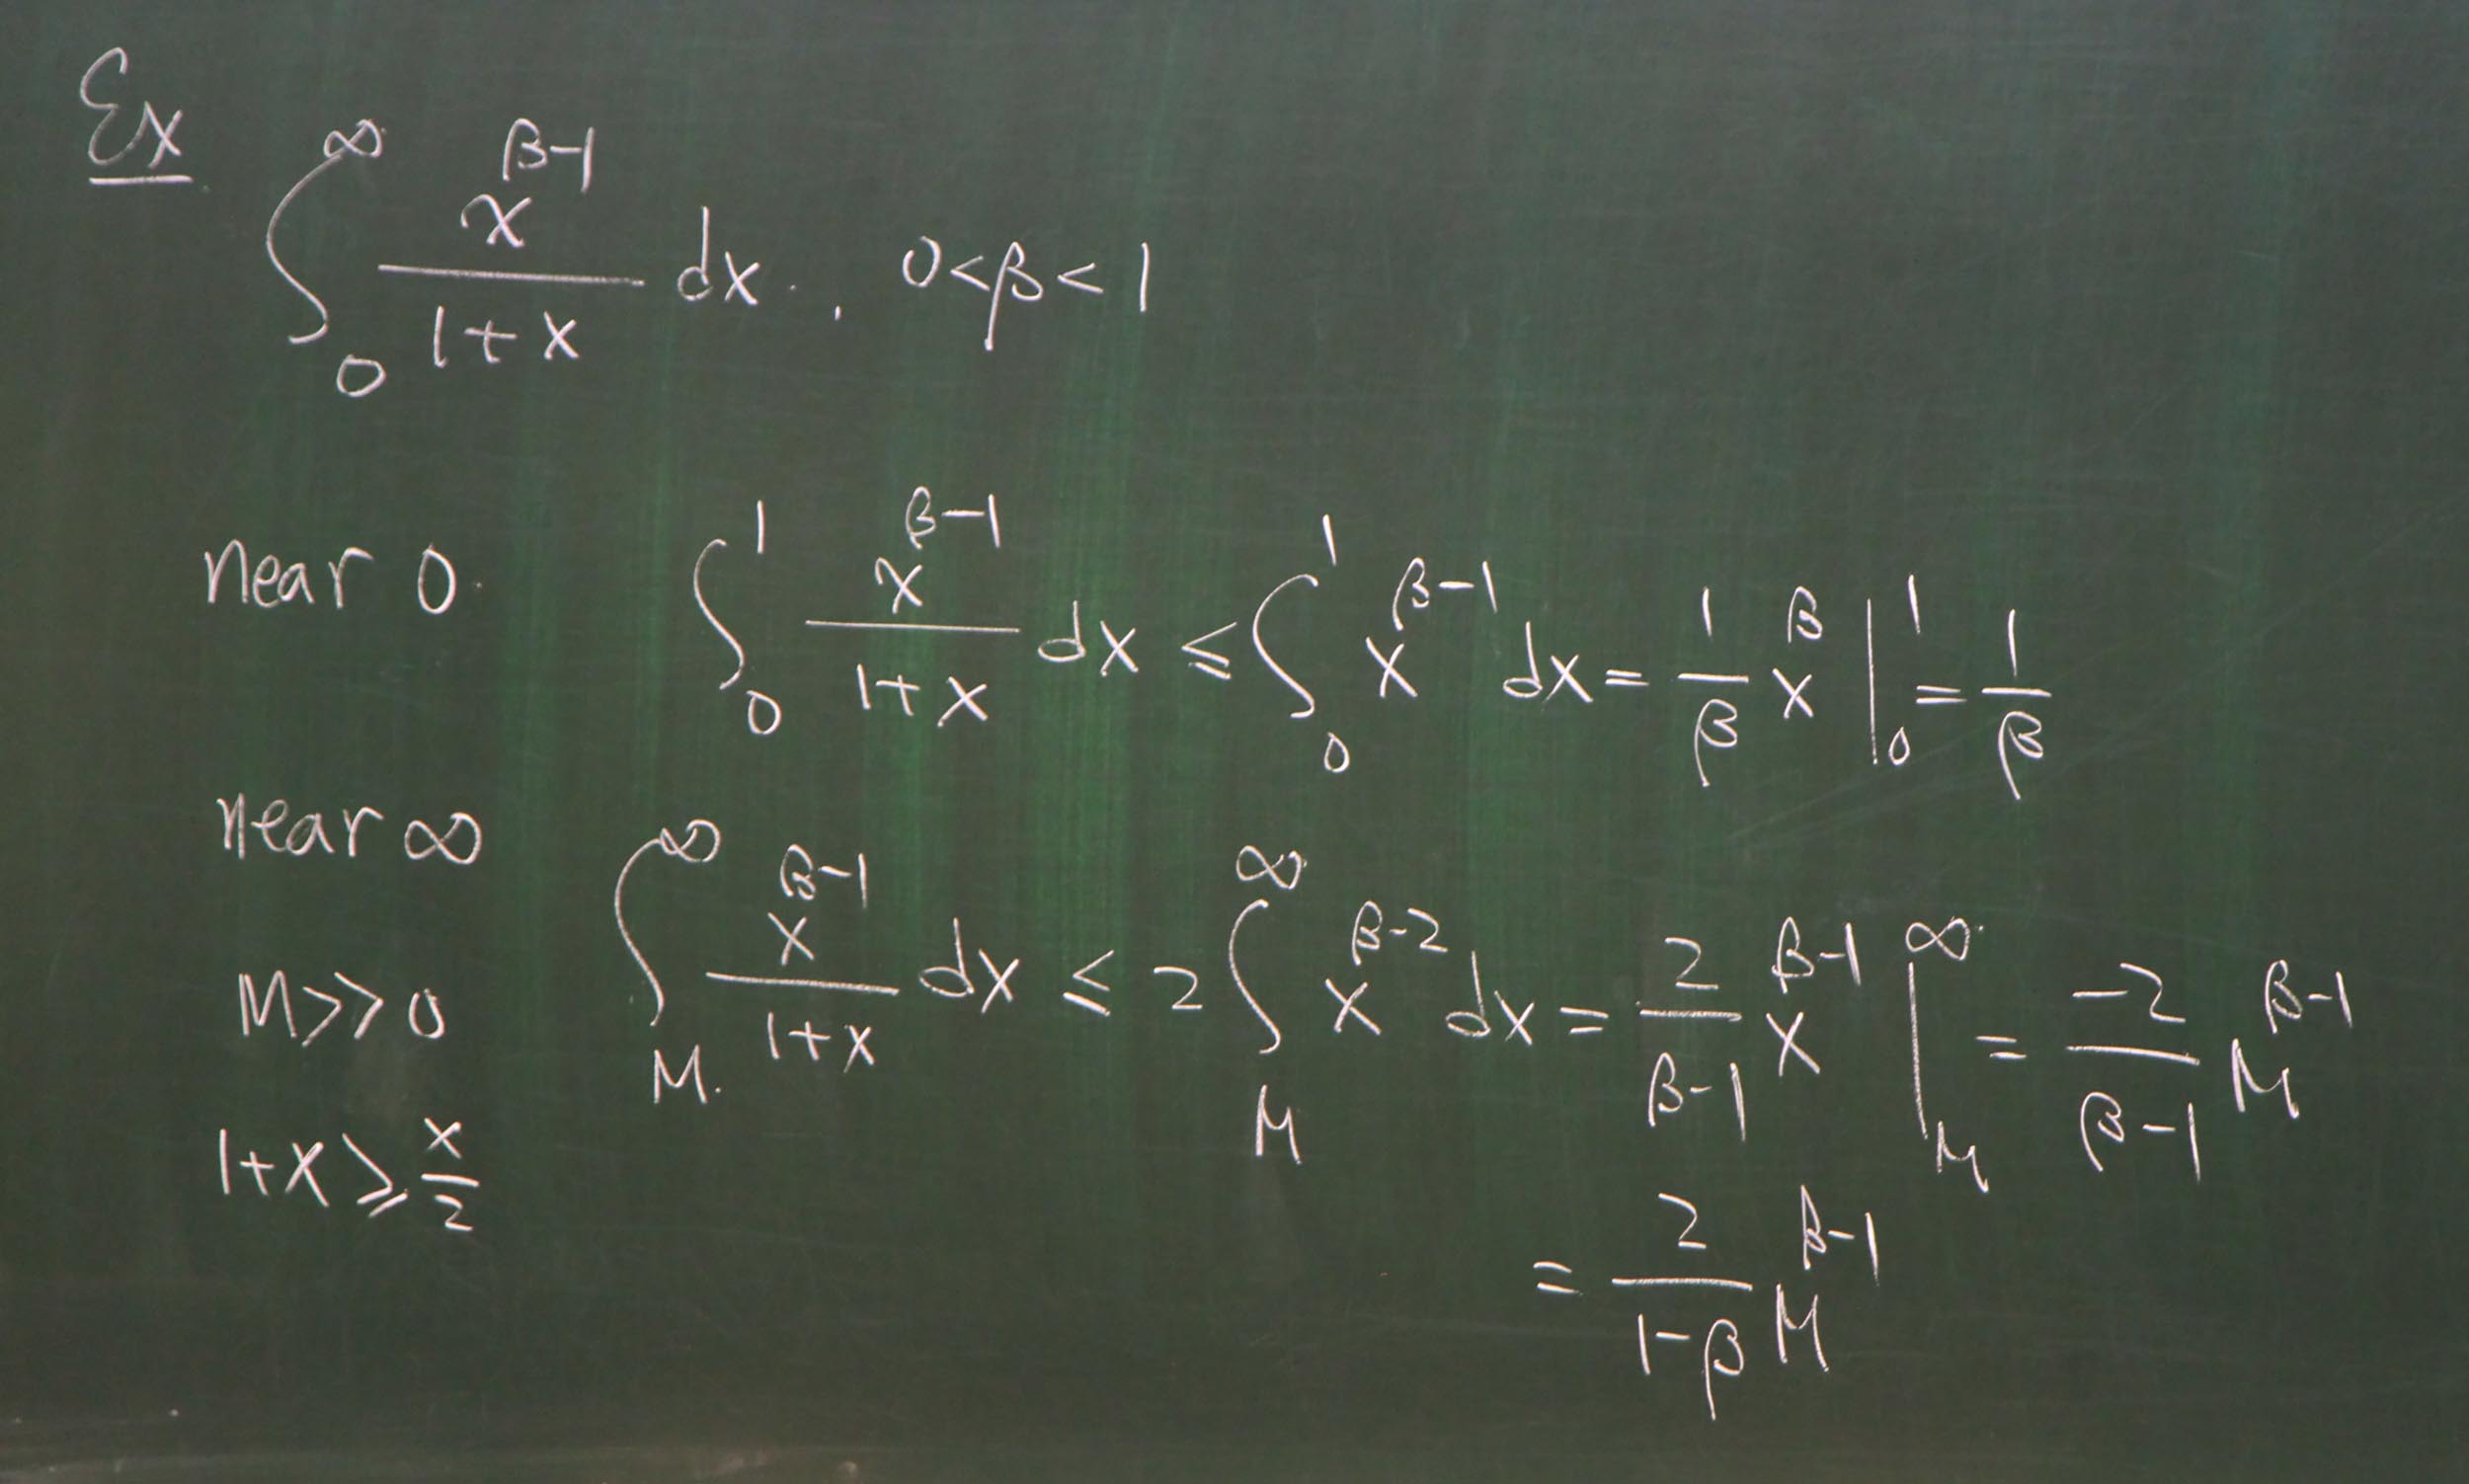 Ex
∫_0^∞ x^{β-1}/(1+x) dx , 0<β<1
near 0 ∫_0^1 x^{β-1}/(1+x) dx ≤ ∫_0^1 x^{β-1} dx = 1/β x^β |_0^1 = 1/β
near ∞
M>>0 ∫_M^∞ x^{β-1}/(1+x) dx ≤ 2 ∫_M^∞ x^{β-2} dx = 2/(β-1) x^{β-1} |_M^∞ = -2/(β-1) M^{β-1}
1+x ≥ x/2
= 2/(1-β) M^{β-1}